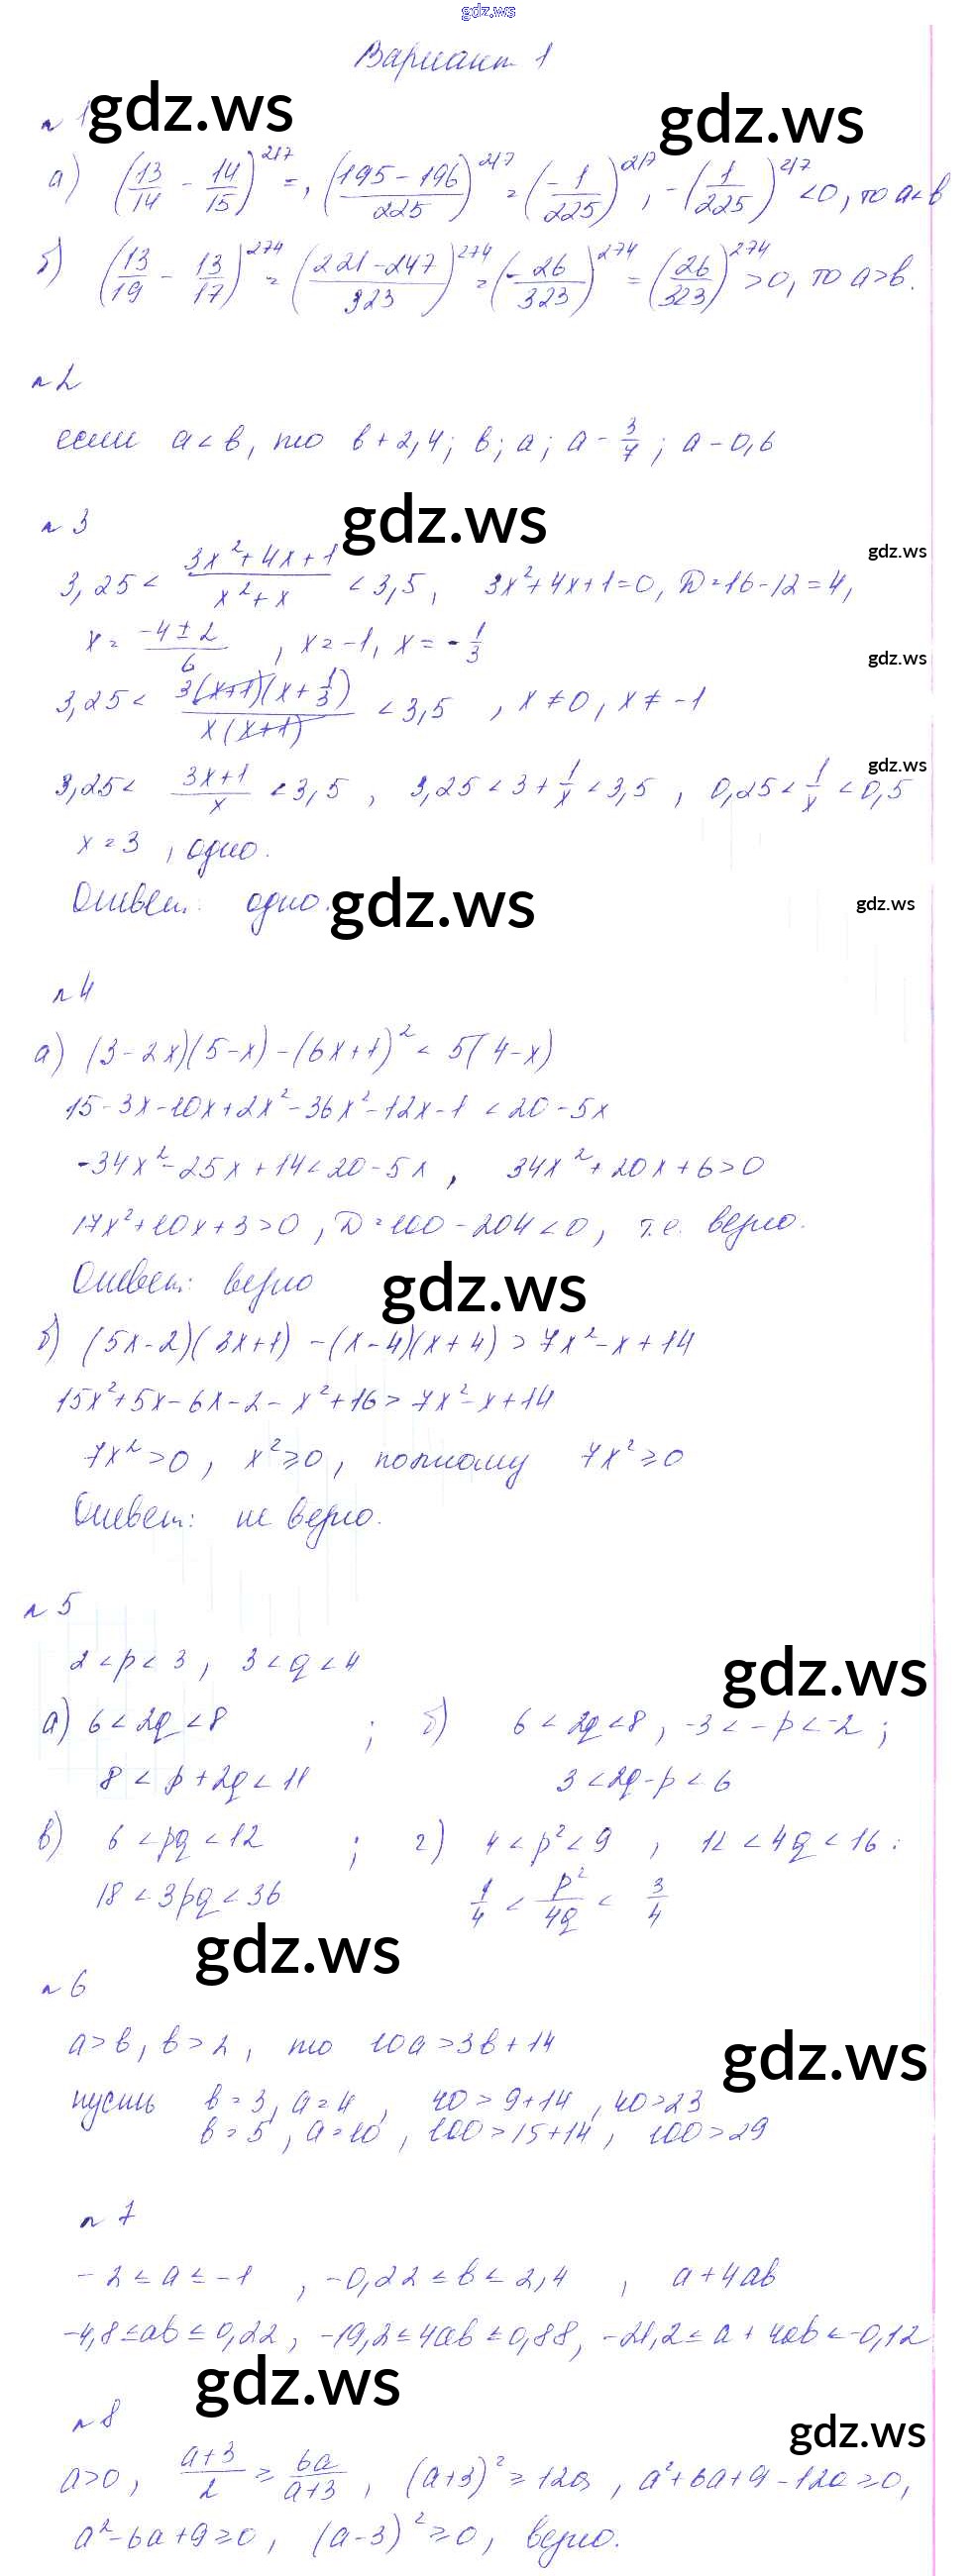 gdz.ws
Вариант 1
n 1 gdz.ws gdz.ws
а) (13/14 - 14/15)^217 =, ((195-196)/225)^217 = (-1/225)^217, -(1/225)^217 <0, то a<b
б) (13/19 - 13/17)^274 = ((221-247)/323)^274 = (-26/323)^274 = (26/323)^274 >0, то a>b.
n 2
если a<b, то b+2,4; b; a; a-3/7; a-0,6
n 3 gdz.ws
gdz.ws
3,25 < (3x²+4x+1)/(x²+x) < 3,5, 3x²+4x+1=0, D=16-12=4,
x = (-4±2)/6, x=-1, x=-1/3
gdz.ws
3,25 < 3(x+1)(x+1/3)/(x(x+1)) < 3,5, x≠0, x≠-1
gdz.ws
3,25 < (3x+1)/x < 3,5, 3,25 < 3+1/x < 3,5, 0,25 < 1/x < 0,5
x=3, одно.
Ответ: одно. gdz.ws gdz.ws
n 4
а) (3-2x)(5-x)-(6x+1)² < 5(4-x)
15-3x-10x+2x²-36x²-12x-1 < 20-5x
-34x²-25x+14<20-5x, 34x²+20x+6>0
17x²+10x+3>0, D=100-204<0, т.е. верно.
Ответ: верно gdz.ws
б) (5x-2)(3x+1)-(x-4)(x+4) > 7x²-x+14
15x²+5x-6x-2-x²+16>7x²-x+14
7x²>0, x²≥0, поэтому 7x²≥0
Ответ: не верно.
n 5
2<p<3, 3<q<4 gdz.ws
а) 6<2q<8 ; б) 6<2q<8, -3<-p<-2;
8<p+2q<11 3<2q-p<6
в) 6<pq<12 ; г) 4<p²<9, 12<4q<16:
18<3pq<36 1/4 < p²/4q < 3/4
gdz.ws
n 6
a>b, b>2, то 10a>3b+14 gdz.ws
пусть b=3, a=4, 40>9+14, 40>23
b=5, a=10, 100>15+14, 100>29
n 7
-2≤a≤-1, -0,22≤b≤2,4, a+4ab
-4,8≤ab≤0,22, -19,2≤4ab≤0,88, -21,2≤a+4ab<-0,12
gdz.ws
n 8 gdz.ws
a>0, (a+3)/2 ≥ 6a/(a+3), (a+3)²≥12a, a²+6a+9-12a≥0,
a²-6a+9≥0, (a-3)²≥0, верно.